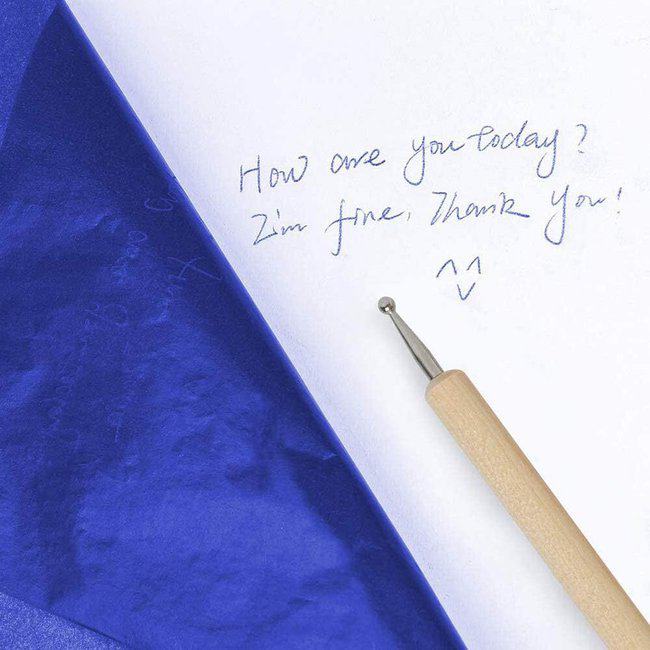 How are you today?
I'm fine, Thank you!